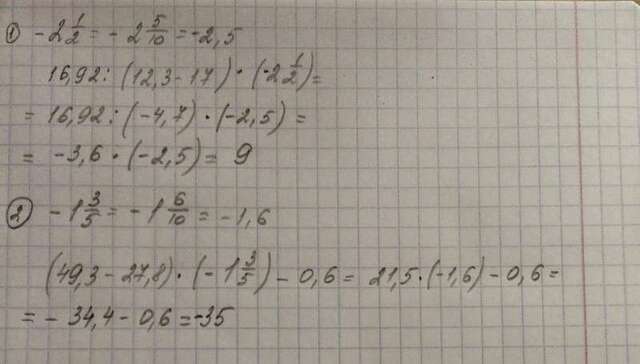 ① -2 1/2 = -2 5/10 = -2,5
16,92 : (12,3 - 17) · (-2 1/2) =
= 16,92 : (-4,7) · (-2,5) =
= -3,6 · (-2,5) = 9
② -1 3/5 = -1 6/10 = -1,6
(49,3 - 27,8) · (-1 3/5) - 0,6 = 21,5 · (-1,6) - 0,6 =
= -34,4 - 0,6 = -35